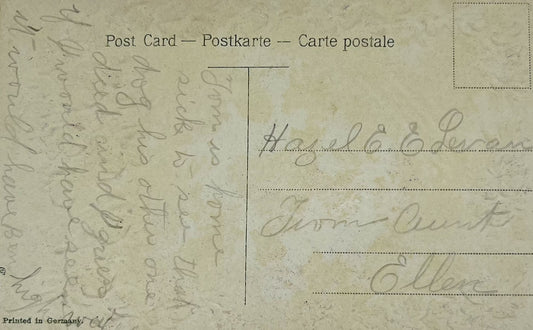 Post Card — Postkarte — Carte postale
Tom is home
sick to see that
dog his other one
died and I guess
if I would have seen
it would have
Hazel E E Levan
From Aunt
Ellen
Printed in Germany.